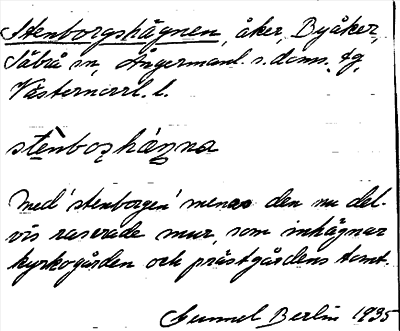 Stenborgshägnen, åker, Byåker,
Säbrå sn, Ångermanl. s. doms. tg,
Västernorrl. l.
stènboshä́gna
Med 'stenborgen' menas den nu del-
vis raserade mur, som inhägnar
kyrkogården och prästgårdens tomt.
Gunnel Berlin 1935